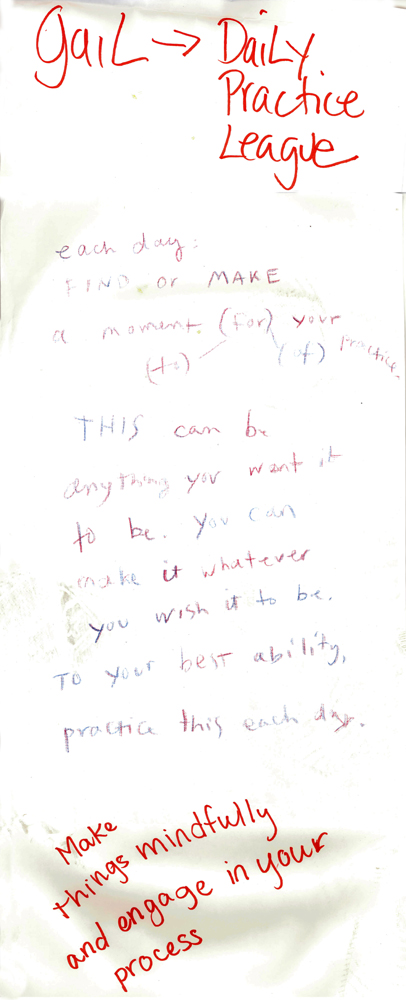 gaiL → DaiLy
Practice
League
each day:
FIND or MAKE
a moment (for) your
(to) (of) practice.
THIS can be
anything you want it
to be. You can
make it whatever
you wish it to be.
TO your best ability,
practice this each day.
Make
things mindfully
and engage in your
process